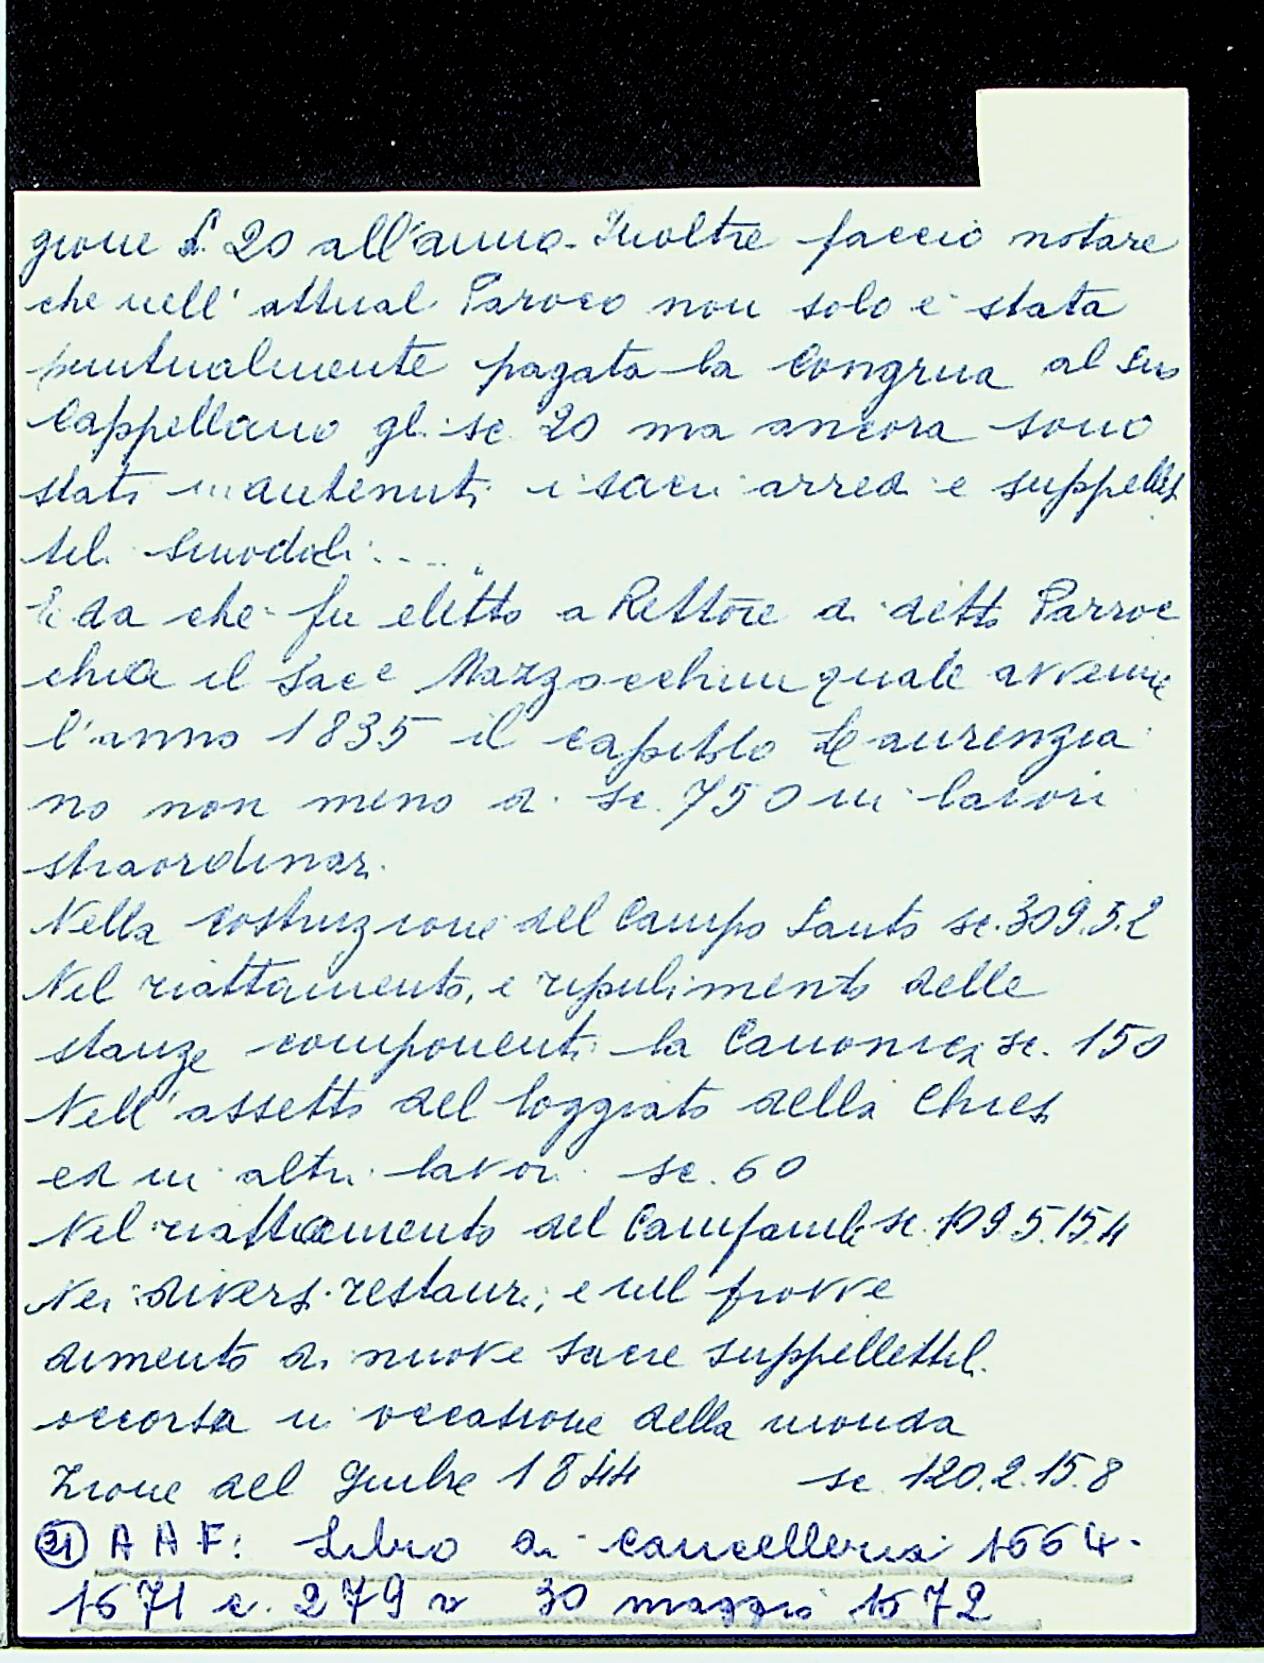 gione £. 20 all'anno. Inoltre faccio notare
che nell' attual Paroco non solo è stata
puntualmente pagata la Congrua al suo
Cappellano gli sc. 20 ma ancora sono
stati mantenuti i sacri arredi e suppellet
tili
E da che fu eletto a Rettore di detto Parroc
chia il Sace Mazzocchini quale avvenne
l'anno 1835 il capitolo Laurenzia
no non meno di sc. 750 in lavori
straordinari.
Nella costruzione del Campo Santo sc. 309.5.2
Nel riattamento, e ripulimento delle
stanze componenti la Canonica sc. 150
Nell'assetto del loggiato della Chiesa
ed in altri lavori sc. 60
Nel riattamento del Campanile sc. 109.5.15.4
Nei diversi restauri, e nel provve
dimento di nuove sacre suppellettili
occorsa in occasione della inonda
zione del 9mbre 1844 sc. 120.2.15.8
(21) A A F: Libro di cancelleria 1664-
1671 c. 279 v 30 maggio 1672